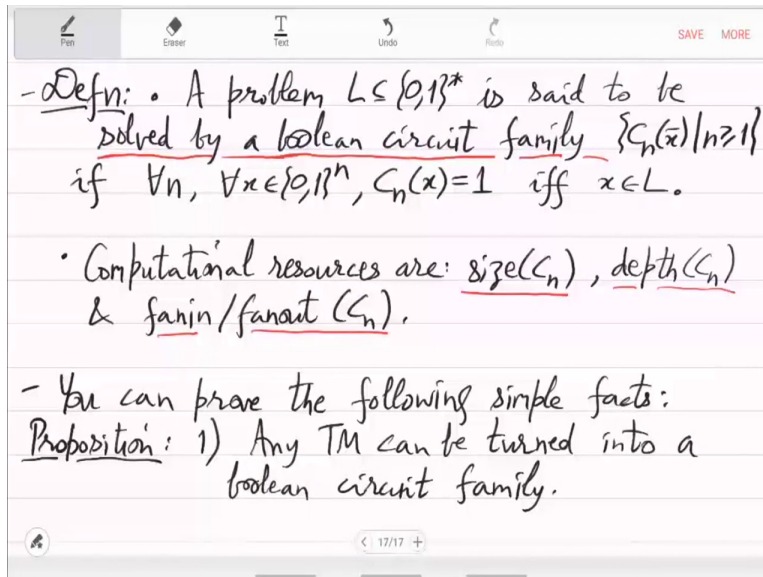 Pen Eraser Text Undo Redo SAVE MORE
- Defn: • A problem L ⊆ {0,1}* is said to be
solved by a boolean circuit family {Cₙ(x̄)|n≥1}
if ∀n, ∀x∈{0,1}ⁿ, Cₙ(x)=1 iff x∈L.
• Computational resources are: size(Cₙ), depth(Cₙ)
& fanin/fanout (Cₙ).
- You can prove the following simple facts:
Proposition: 1) Any TM can be turned into a
boolean circuit family.
< 17/17 +